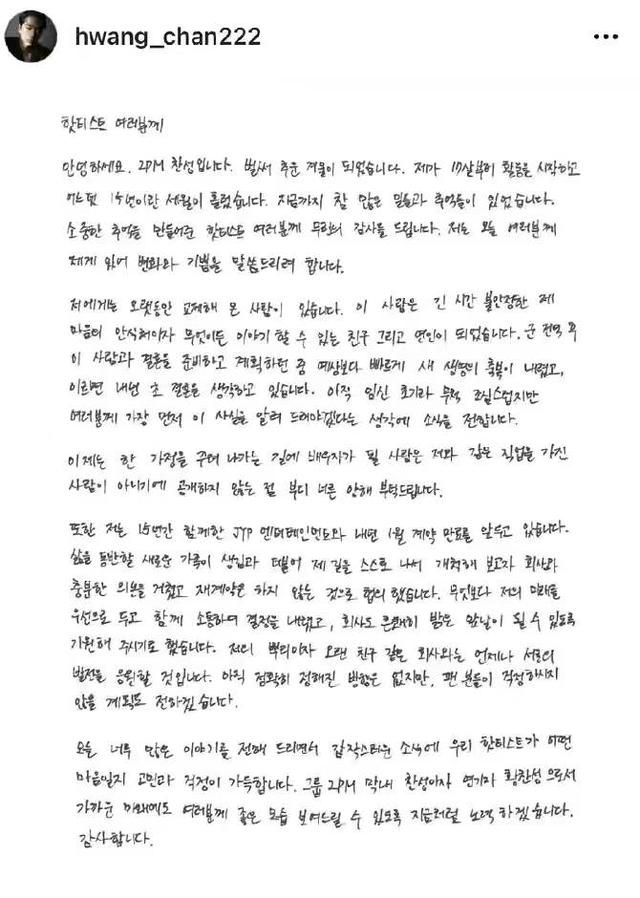 hwang_chan222
핫티스트 여러분께
안녕하세요. 2PM 찬성입니다. 벌써 추운 겨울이 되었습니다. 제가 17살부터 활동을 시작하고
어느덧 15년이란 세월이 흘렀습니다. 지금까지 참 많은 일들과 추억들이 있었습니다.
소중한 추억을 만들어준 핫티스트 여러분께 무한의 감사를 드립니다. 저는 오늘 여러분께
제게 있어 변화와 기쁨을 말씀드리려 합니다.
저에게는 오랫동안 교제해 온 사람이 있습니다. 이 사람은 긴 시간 불안정한 제
마음의 안식처이자 무엇이든 이야기 할 수 있는 친구 그리고 연인이 되었습니다. 군 전역 후
이 사람과 결혼을 준비하고 계획하던 중 예상보다 빠르게 새 생명의 축복이 내렸고,
이르면 내년 초 결혼을 생각하고 있습니다. 아직 임신 초기라 무척 조심스럽지만
여러분께 가장 먼저 이 사실을 알려 드려야겠다는 생각에 소식을 전합니다.
이제는 한 가정을 꾸려 나가는 길에 배우자가 될 사람은 저와 같은 직업을 가진
사람이 아니기에 공개하지 않는 점 부디 너른 양해 부탁드립니다.
또한 저는 15년간 함께한 JYP 엔터테인먼트와 내년 1월 계약 만료를 앞두고 있습니다.
삶을 동반할 새로운 가족이 생김과 더불어 제 길을 스스로 나서 개척해 보고자 회사와
충분한 의논을 거쳤고 재계약은 하지 않는 것으로 협의 했습니다. 무엇보다 저의 미래를
우선으로 두고 함께 소통하며 결정을 내렸고, 회사도 흔쾌히 밝은 앞날이 될 수 있도록
기원해 주시기로 했습니다. 저의 뿌리이자 오랜 친구 같은 회사와는 언제나 서로의
발전을 응원할 것입니다. 아직 정확히 정해진 방향은 없지만, 팬 분들이 걱정하시지
않을 계획도 전하겠습니다.
오늘 너무 많은 이야기를 전해 드리면서 갑작스러운 소식에 우리 핫티스트가 어떤
마음일지 고민과 걱정이 가득합니다. 그룹 2PM 막내 찬성이자 연기자 황찬성 으로서
가까운 미래에도 여러분께 좋은 모습 보여드릴 수 있도록 지금처럼 노력 하겠습니다.
감사합니다.